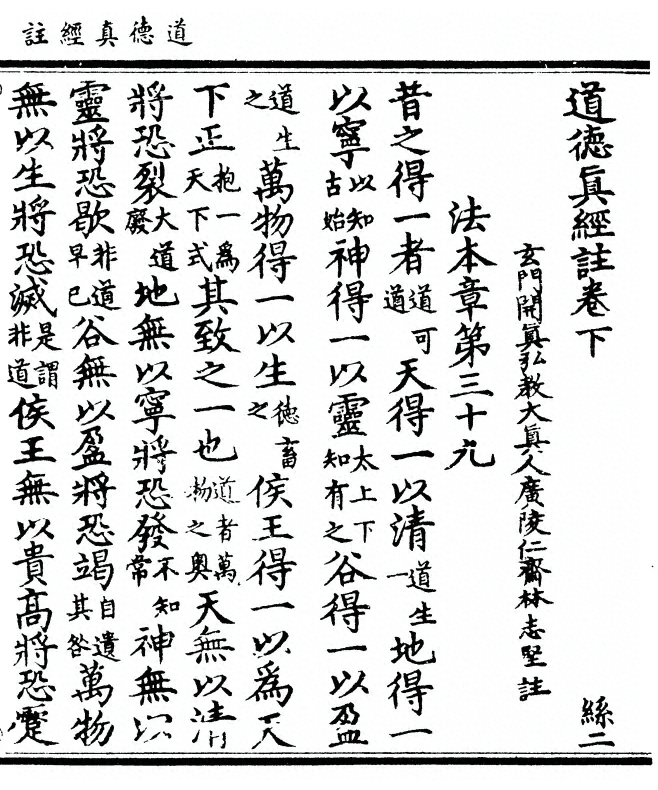 道德真經註
道德眞經註卷下 絲二
玄門開眞弘教大眞人廣陵仁齋林志堅註
法本章第三十九
昔之得一者道可道天得一以清道生一地得一
以寧以知古始神得一以靈太上下知有之谷得一以盈
道生之萬物得一以生德畜之侯王得一以爲天
下正抱一爲天下式其致之一也道者萬物之奧天無以清
將恐裂大道廢地無以寧將恐發不知常神無以
靈將恐歇非道早已谷無以盈將恐竭自遺其咎萬物
無以生將恐滅是謂非道侯王無以貴高將恐蹷